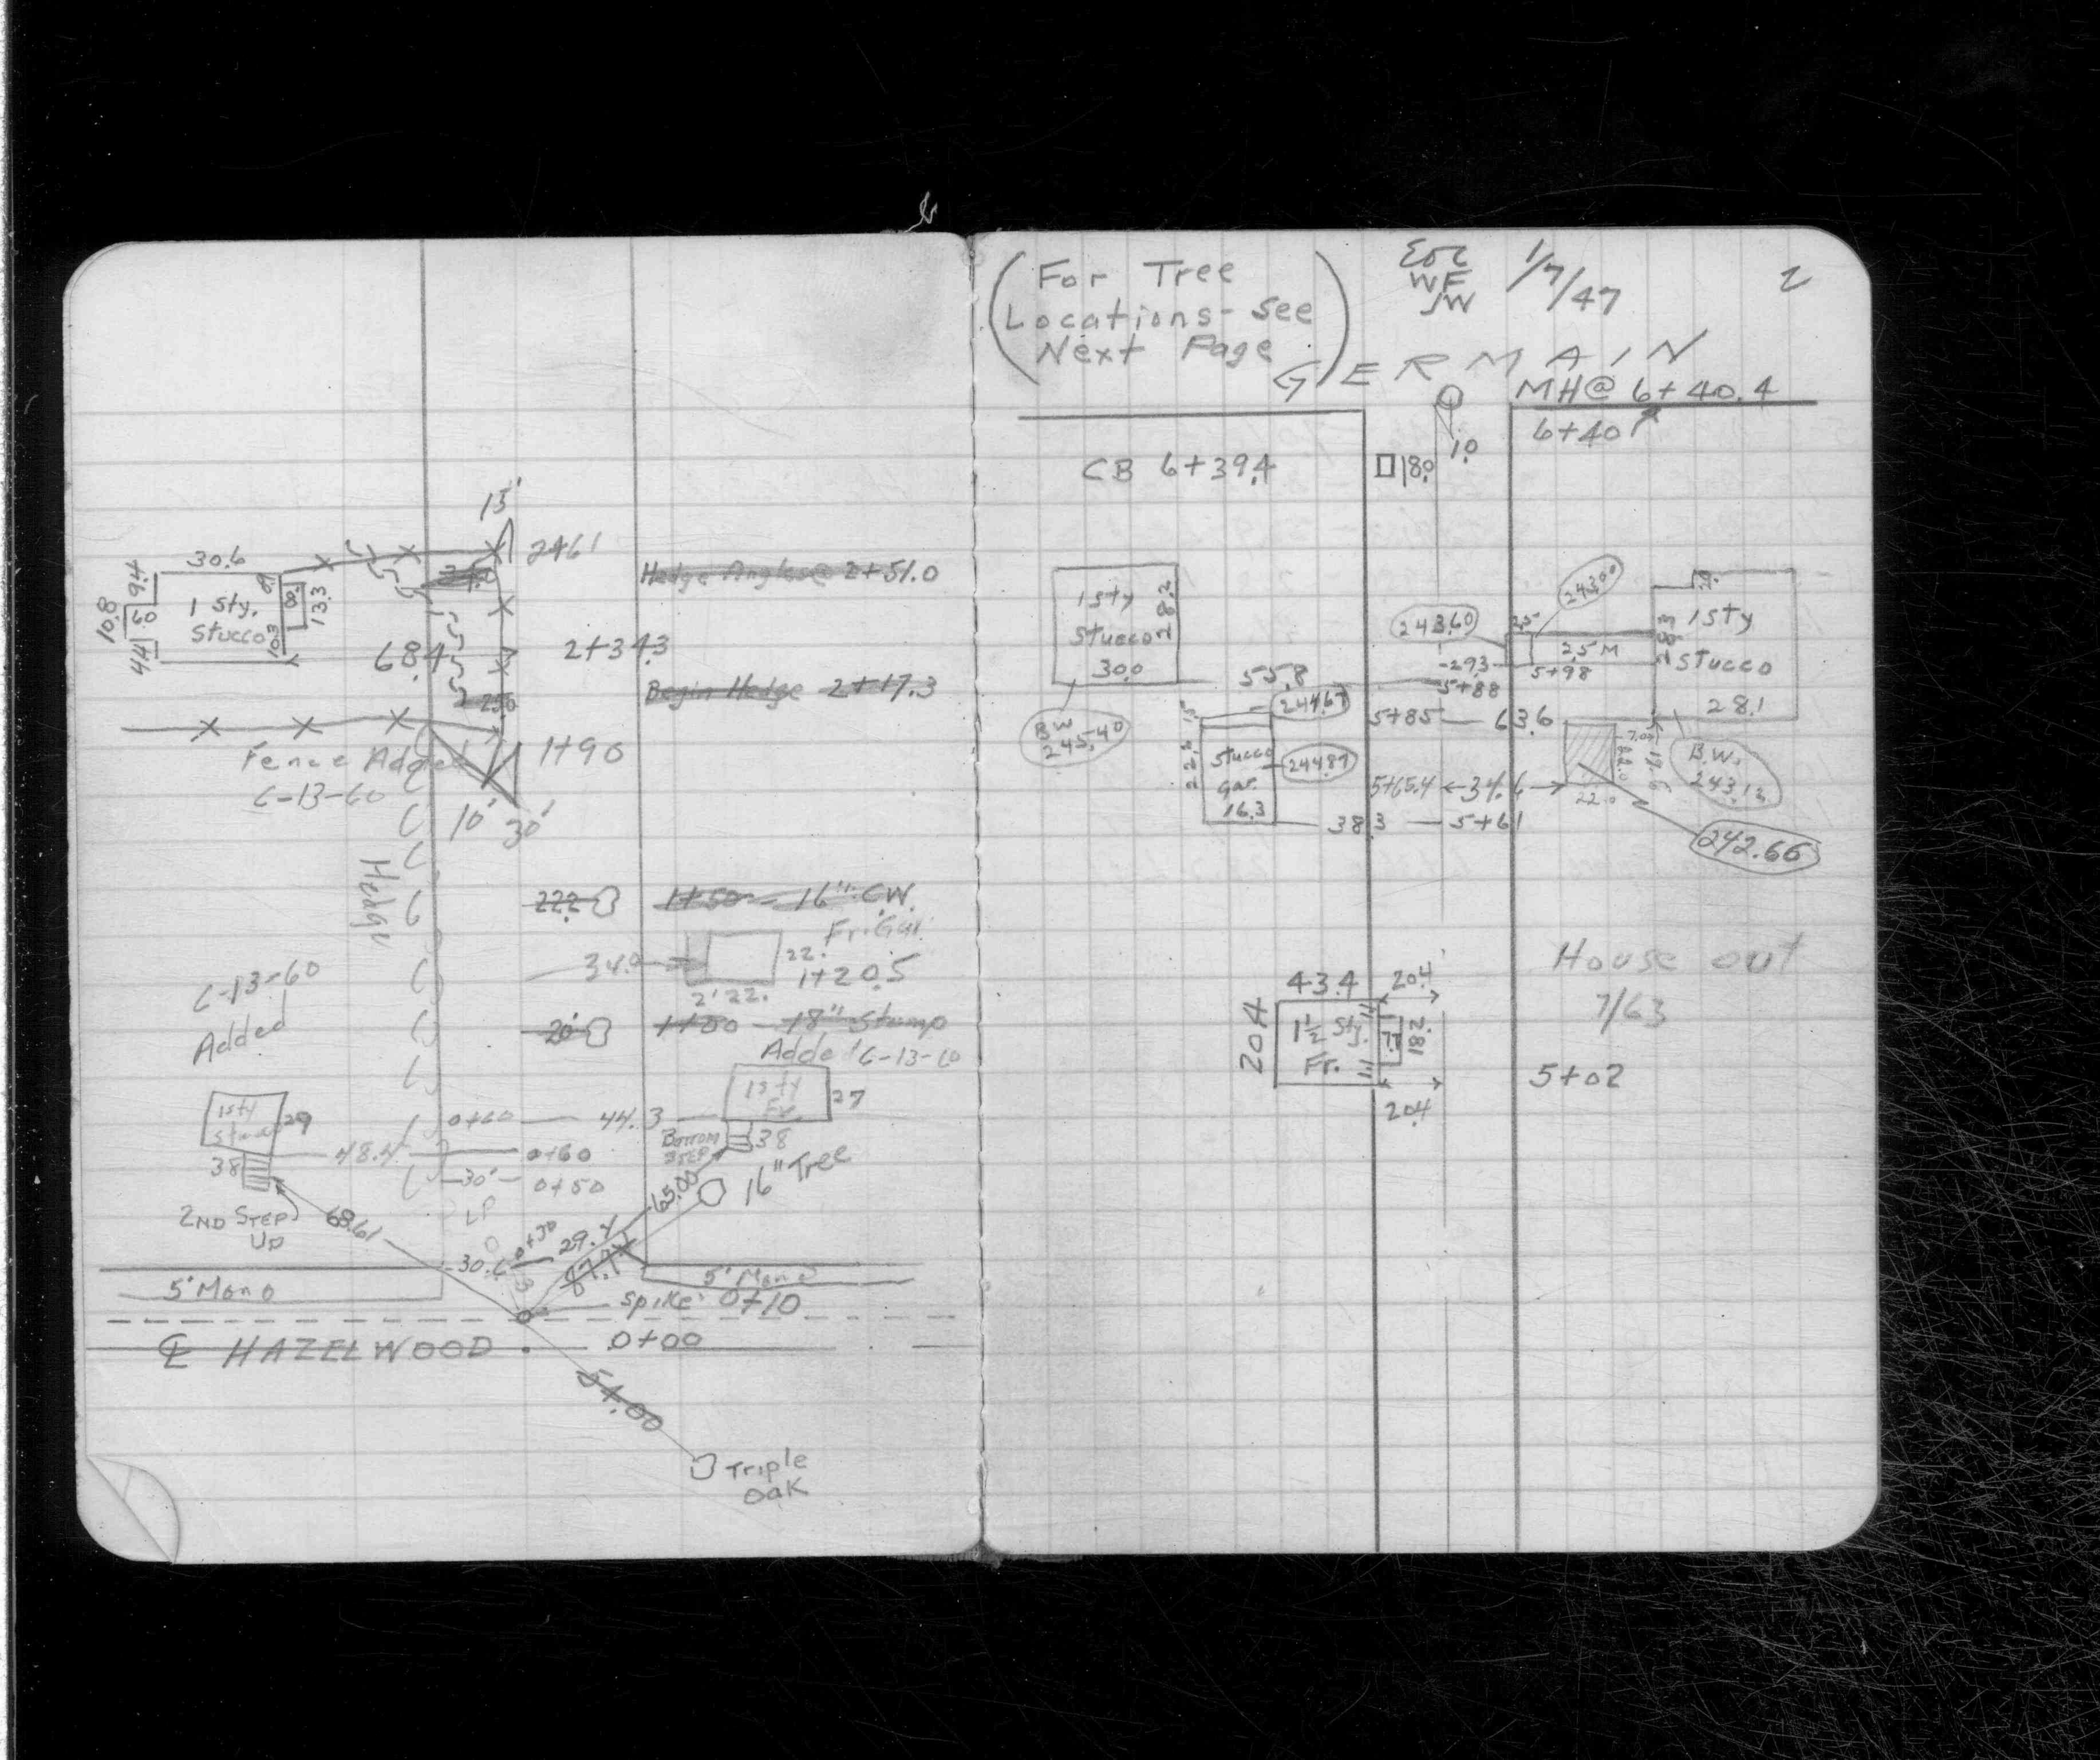 15'
2+61
30.6
9.4
10.8
5.0
4.4
1 Sty.
Stucco
10.3
8.
13.3
Hedge Angles @ 2+51.0
68.4
2+34.3
Begin Hedge 2+17.3
25.0
Fence Added
6-13-60
1+90
10'
30'
Hedge
22.2
1+50 - 16" C.W.
Fr. Gar.
34.0
22.
1+20.5
2' 22.
6-13-60
Added
20'
1+00 - 18" Stump
Added 6-13-60
1 sty
Fr.
27
1 sty
29
0+60 — 44.3
38
Bottom
STEP
48.4
0+60
38
30'
0+50
16" Tree
2ND STEP
UP
68.61
65.00
LP
0+30
29.4
30.6
5' Mono
5' Mono
Spike 0+10
℄ HAZELWOOD
0+00
54.00
Triple
Oak
(For Tree
Locations - See
Next Page)
WF
JW
1/7/47
2
GERMAIN
MH @ 6+40.4
6+40
1.0
CB 6+39.4
18.0
1 Sty
Stucco
28.2
30.0
55.8
BW
245.40
244.67
15
22.2
Stucco
gar.
16.3
244.87
38.3 — 5+61
243.60
243.00
2.5
2.5 M
29.3
5+88
5+98
28.3
1 Sty
Stucco
28.1
5+85 — 63.6
5+65.4 ← 34.6 →
22.0
22.0
B.W.
243.12
242.66
House out
7/63
43.4
20.4
20.4
1½ Sty.
Fr.
7.7
18.2
5+02
20.4